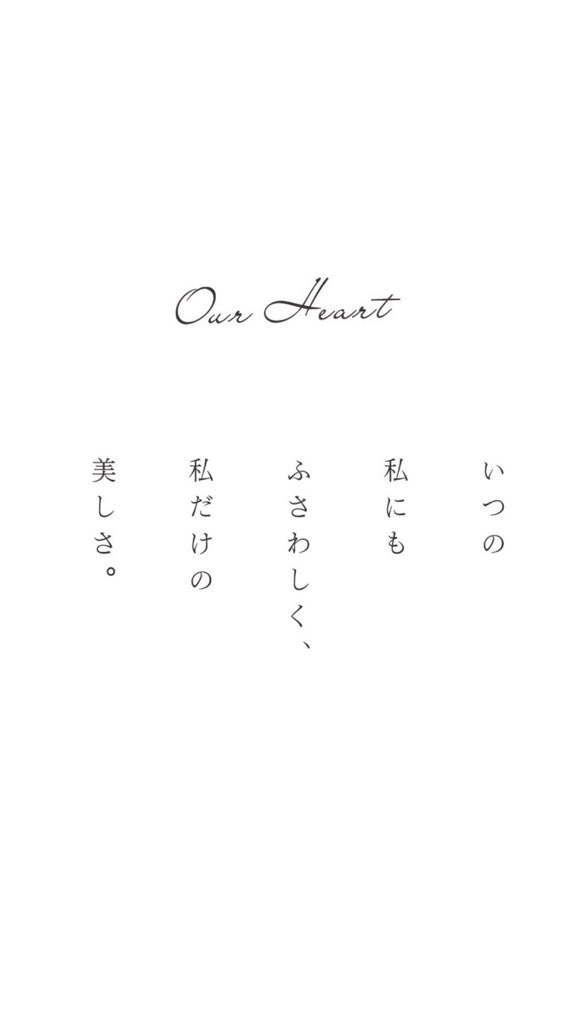 Our Heart
いつの
私にも
ふさわしく、
私だけの
美しさ。